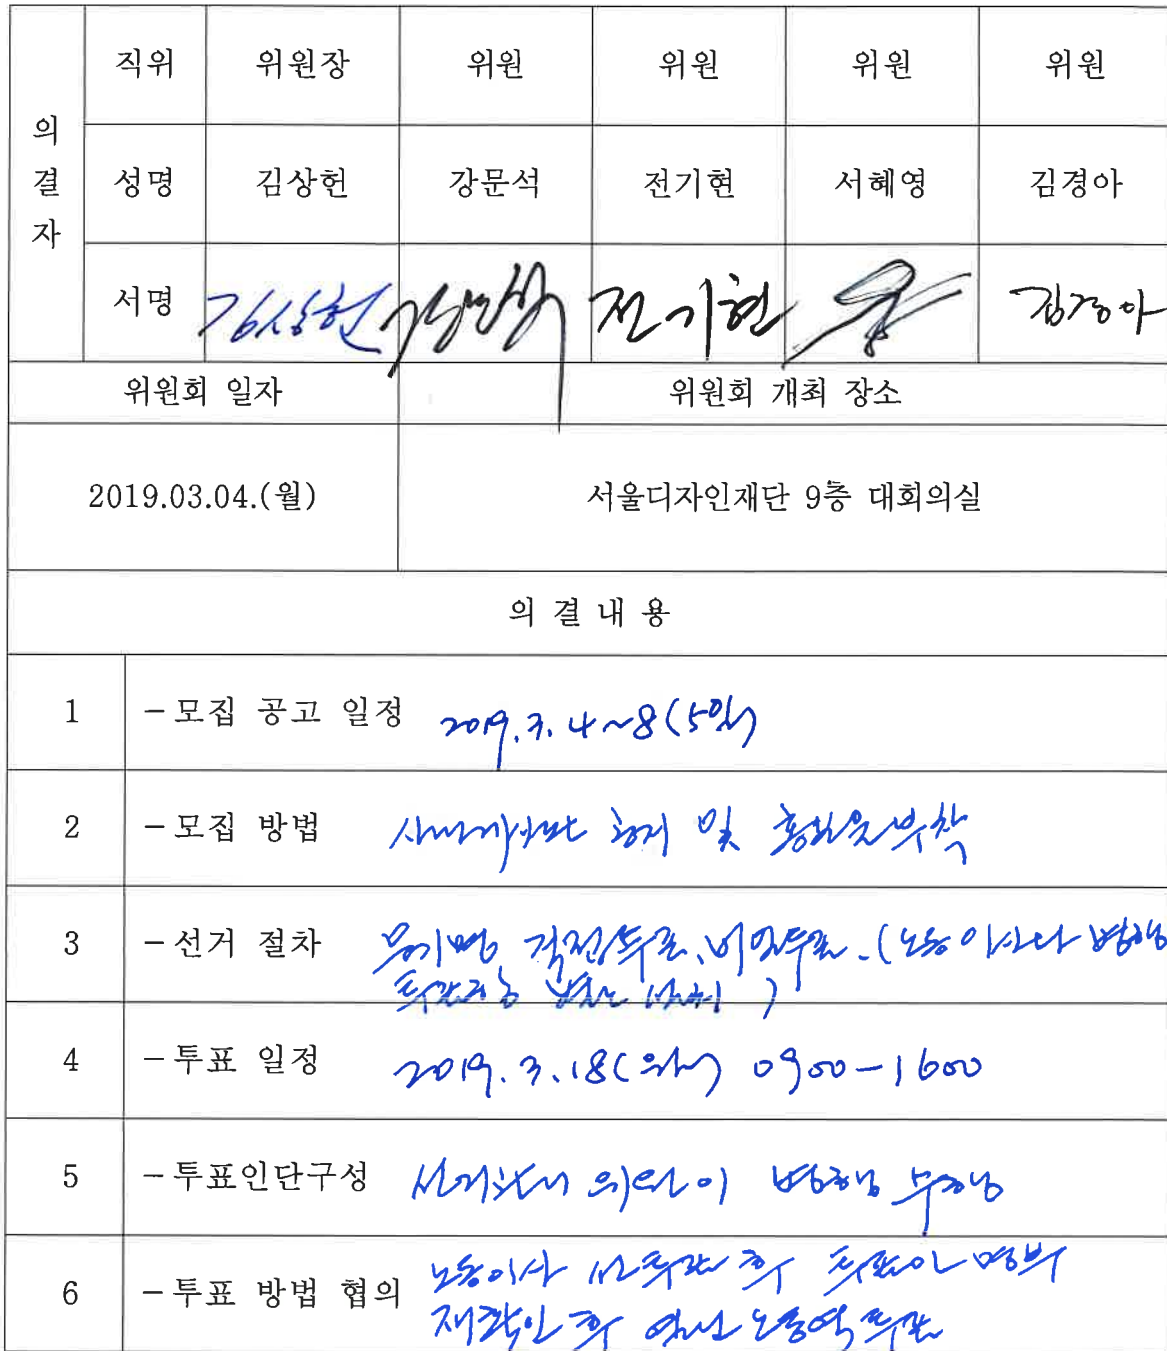 의결자
직위 위원장 위원 위원 위원 위원
성명 김상헌 강문석 전기현 서혜영 김경아
서명 김상헌 전기현 김경아
위원회 일자 위원회 개최 장소
2019.03.04.(월) 서울디자인재단 9층 대회의실
의 결 내 용
1 -모집 공고 일정 2019.3.4~8(5일)
2 -모집 방법 사내게시판 및 홍보문 부착
3 -선거 절차 무기명, 직접투표, 비밀투표.(노동이사와 병행
)
4 -투표 일정 2019.3.18(월) 0900-1600
5 -투표인단구성 위원이 병행 수행
6 -투표 방법 협의 노동이사 선투표 후 투표인 명부
재확인 후 투표